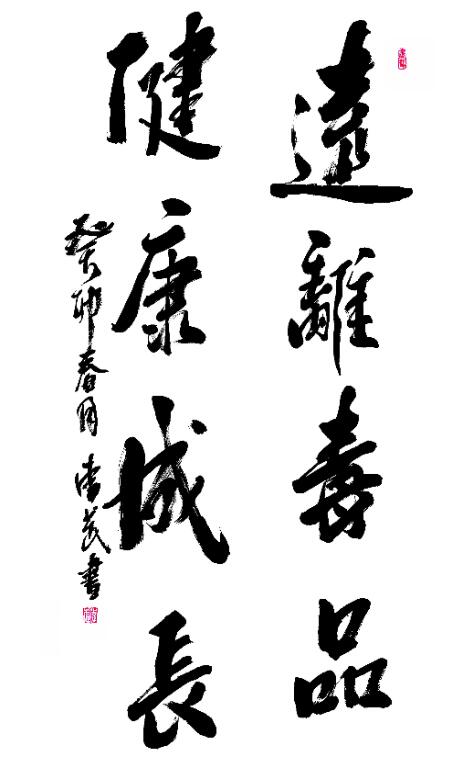 遠離毒品
健康成長
癸卯春月 書